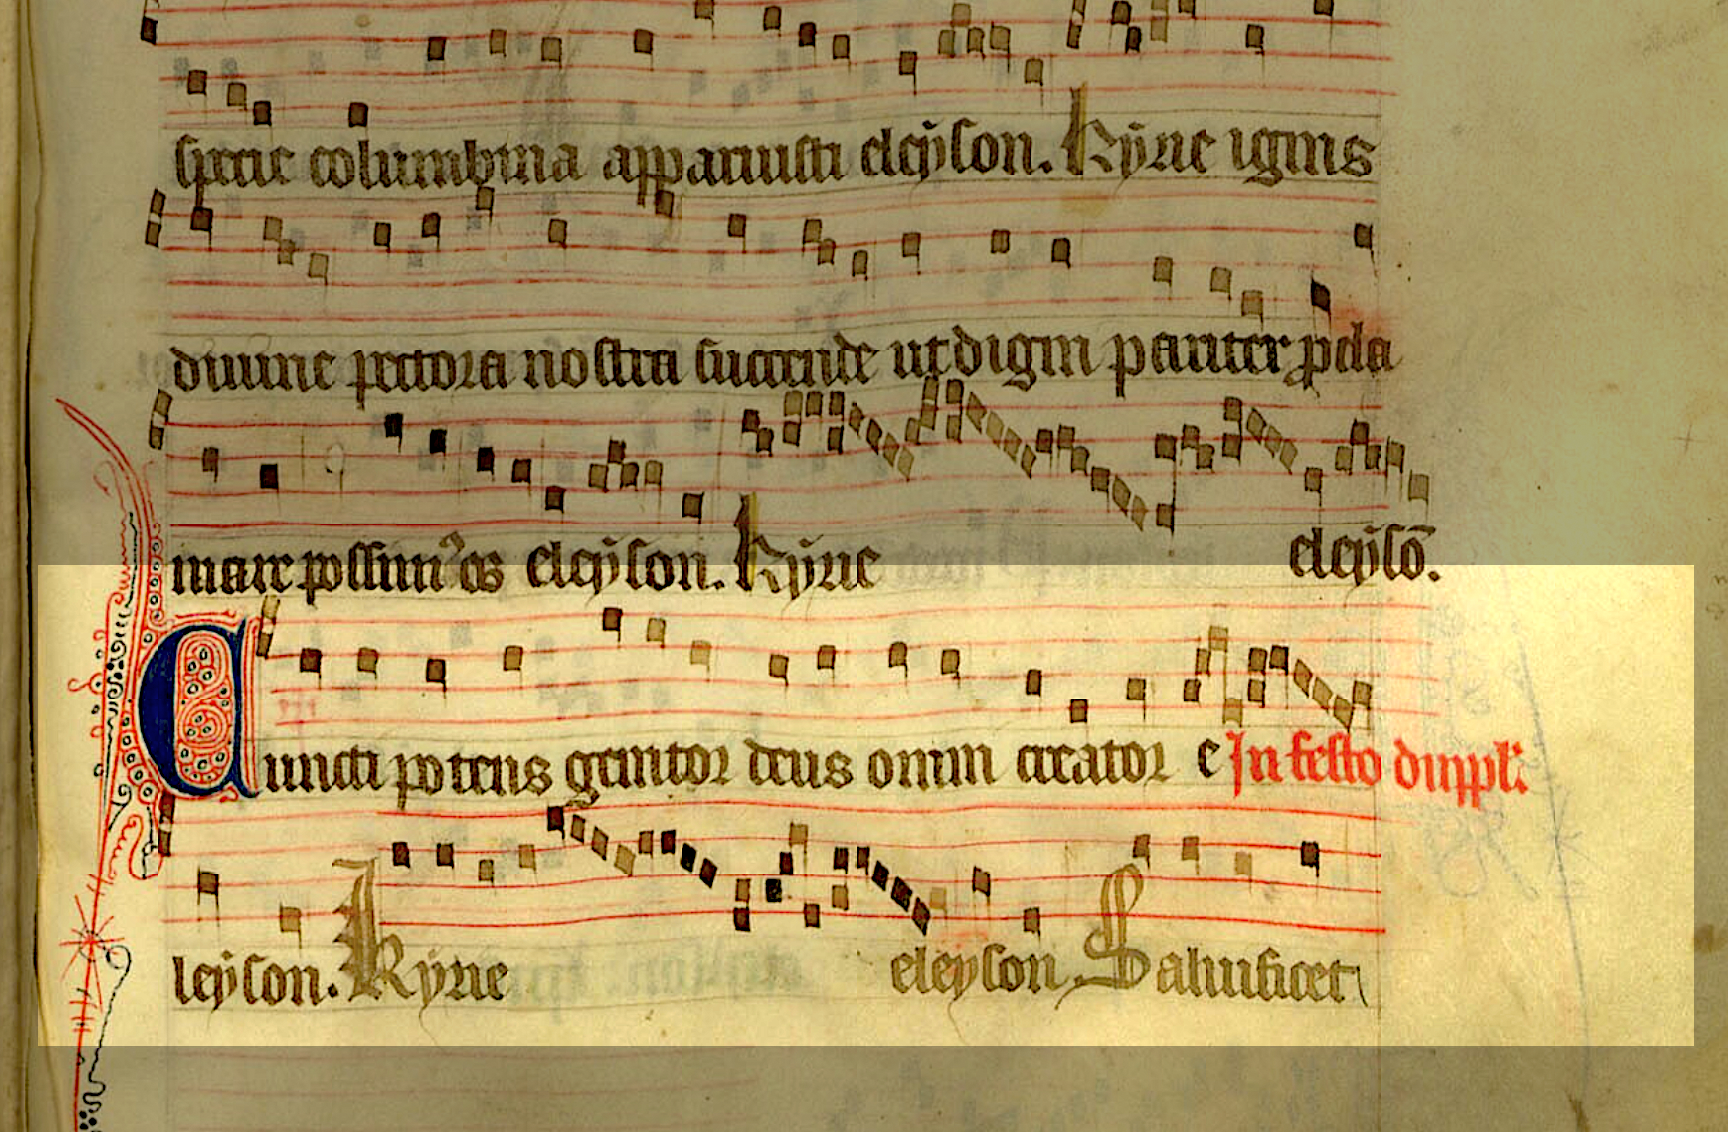 specie columbina apparuisti eleyson. Kyrie ignis
diuine pectora nostra succende ut digni pariter ꝓcla
mare possimꝰ os eleyson. Kyrie eleysō.
Cuncti potens genitor deus omni creator e In festo duppl'
leyson. Kyrie eleyson. Saluificet